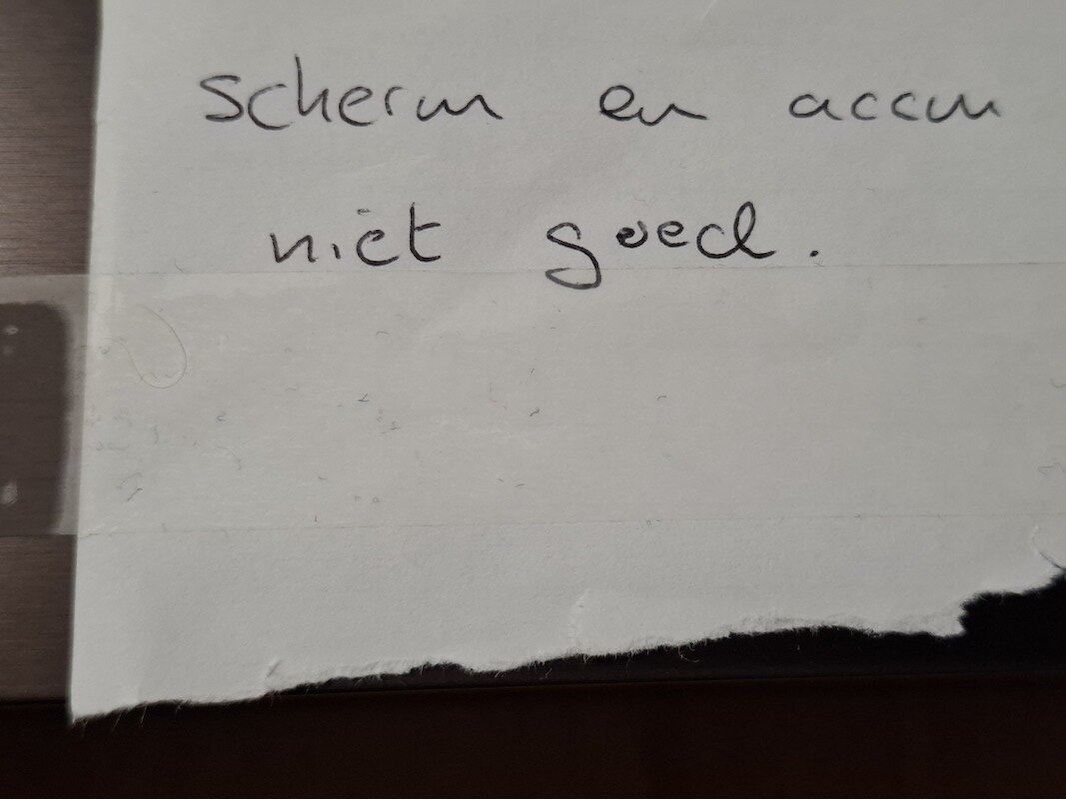 scherm en accu
niet goed.